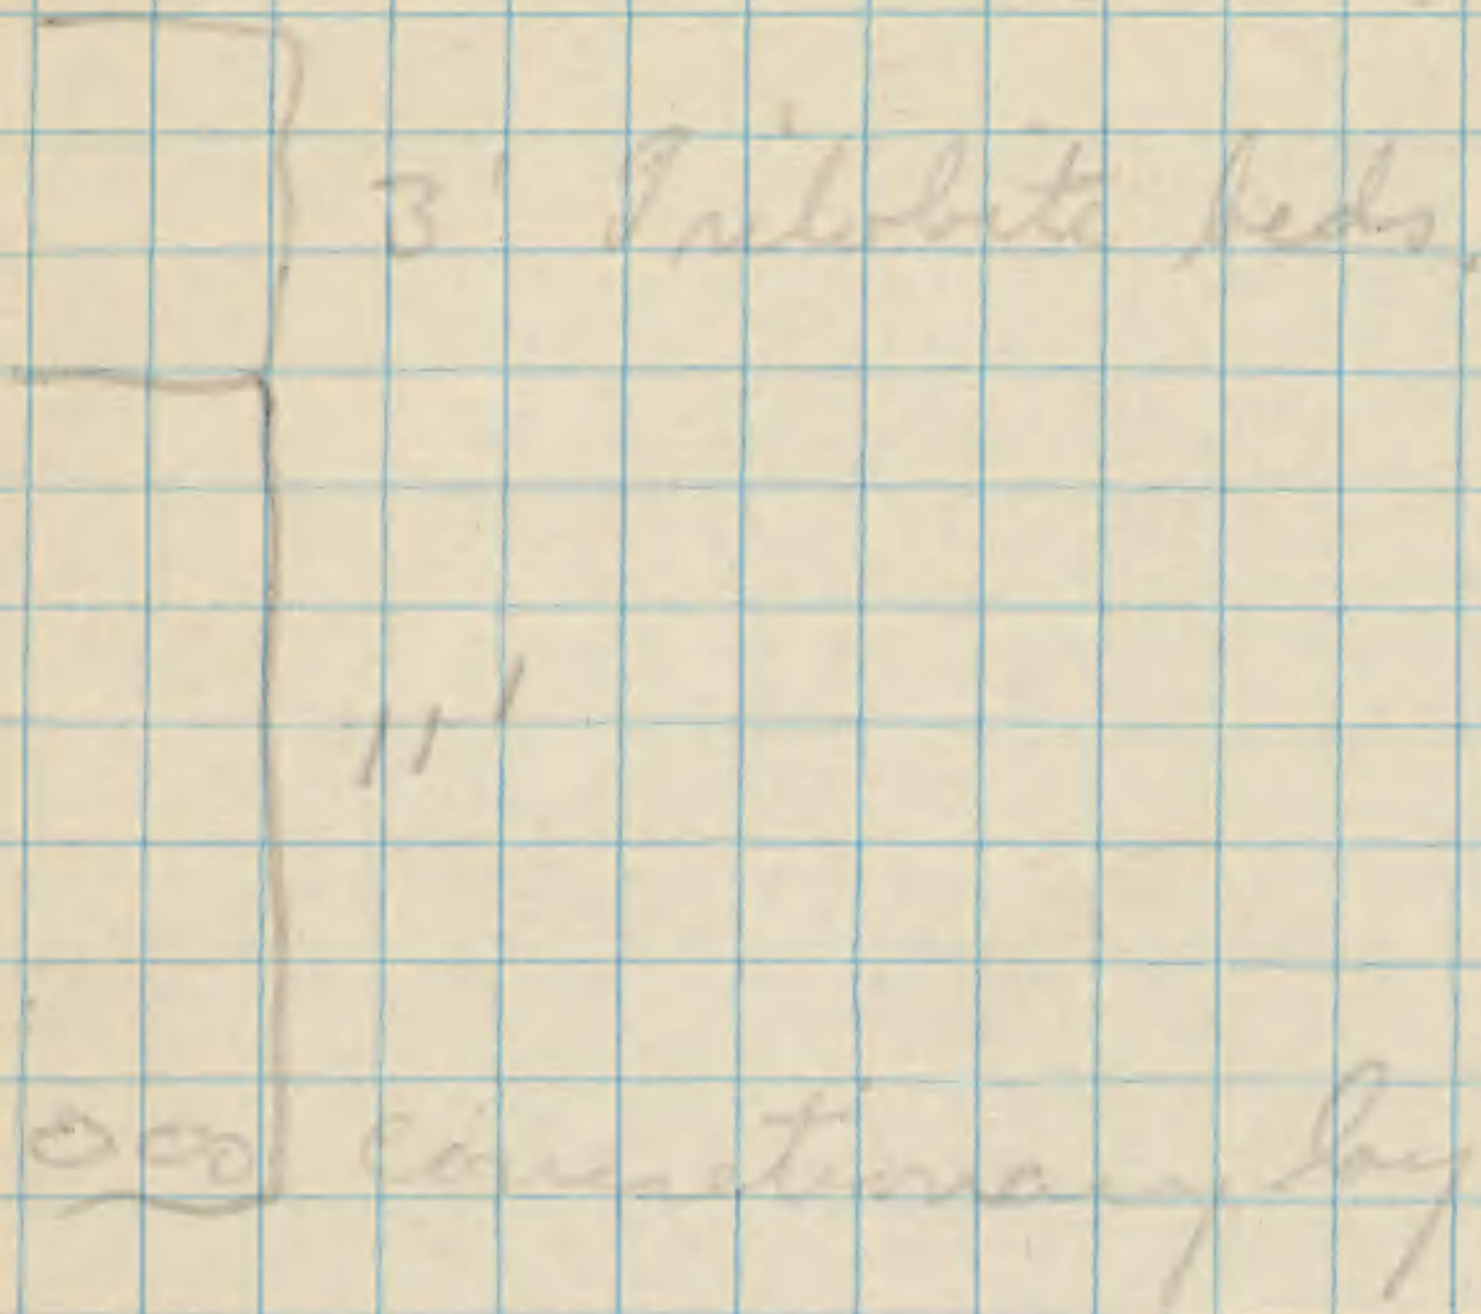 3' Trilobite beds,
11'
Concretionary lay